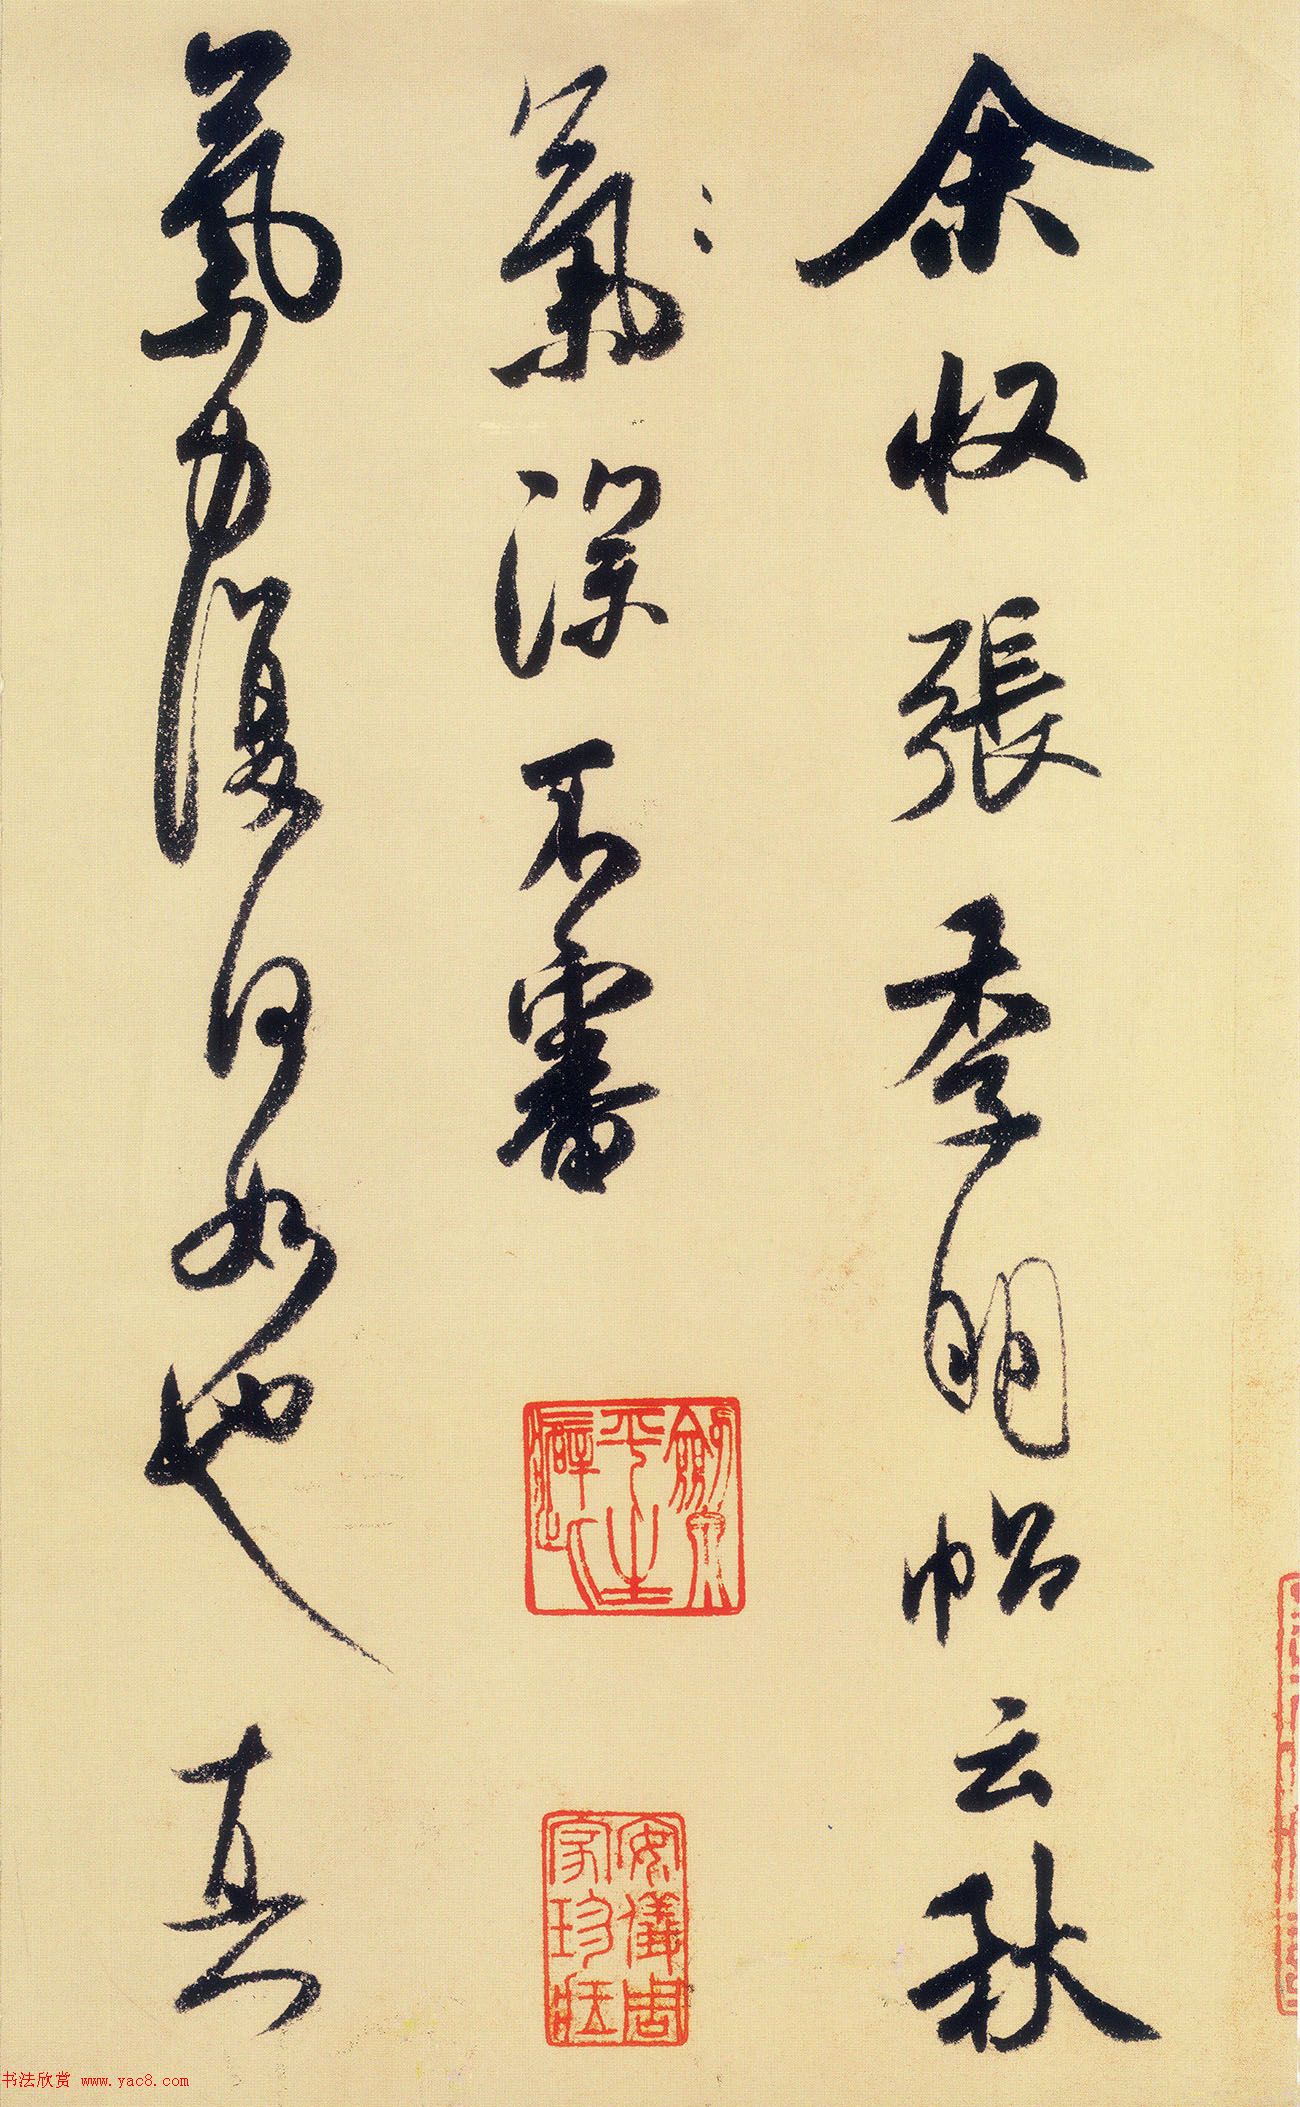 余收張季明帖云秋
氣深不審
氣力復何如也真
劍泉平生癖此
安儀周家珍藏
书法欣赏 www.yac8.com